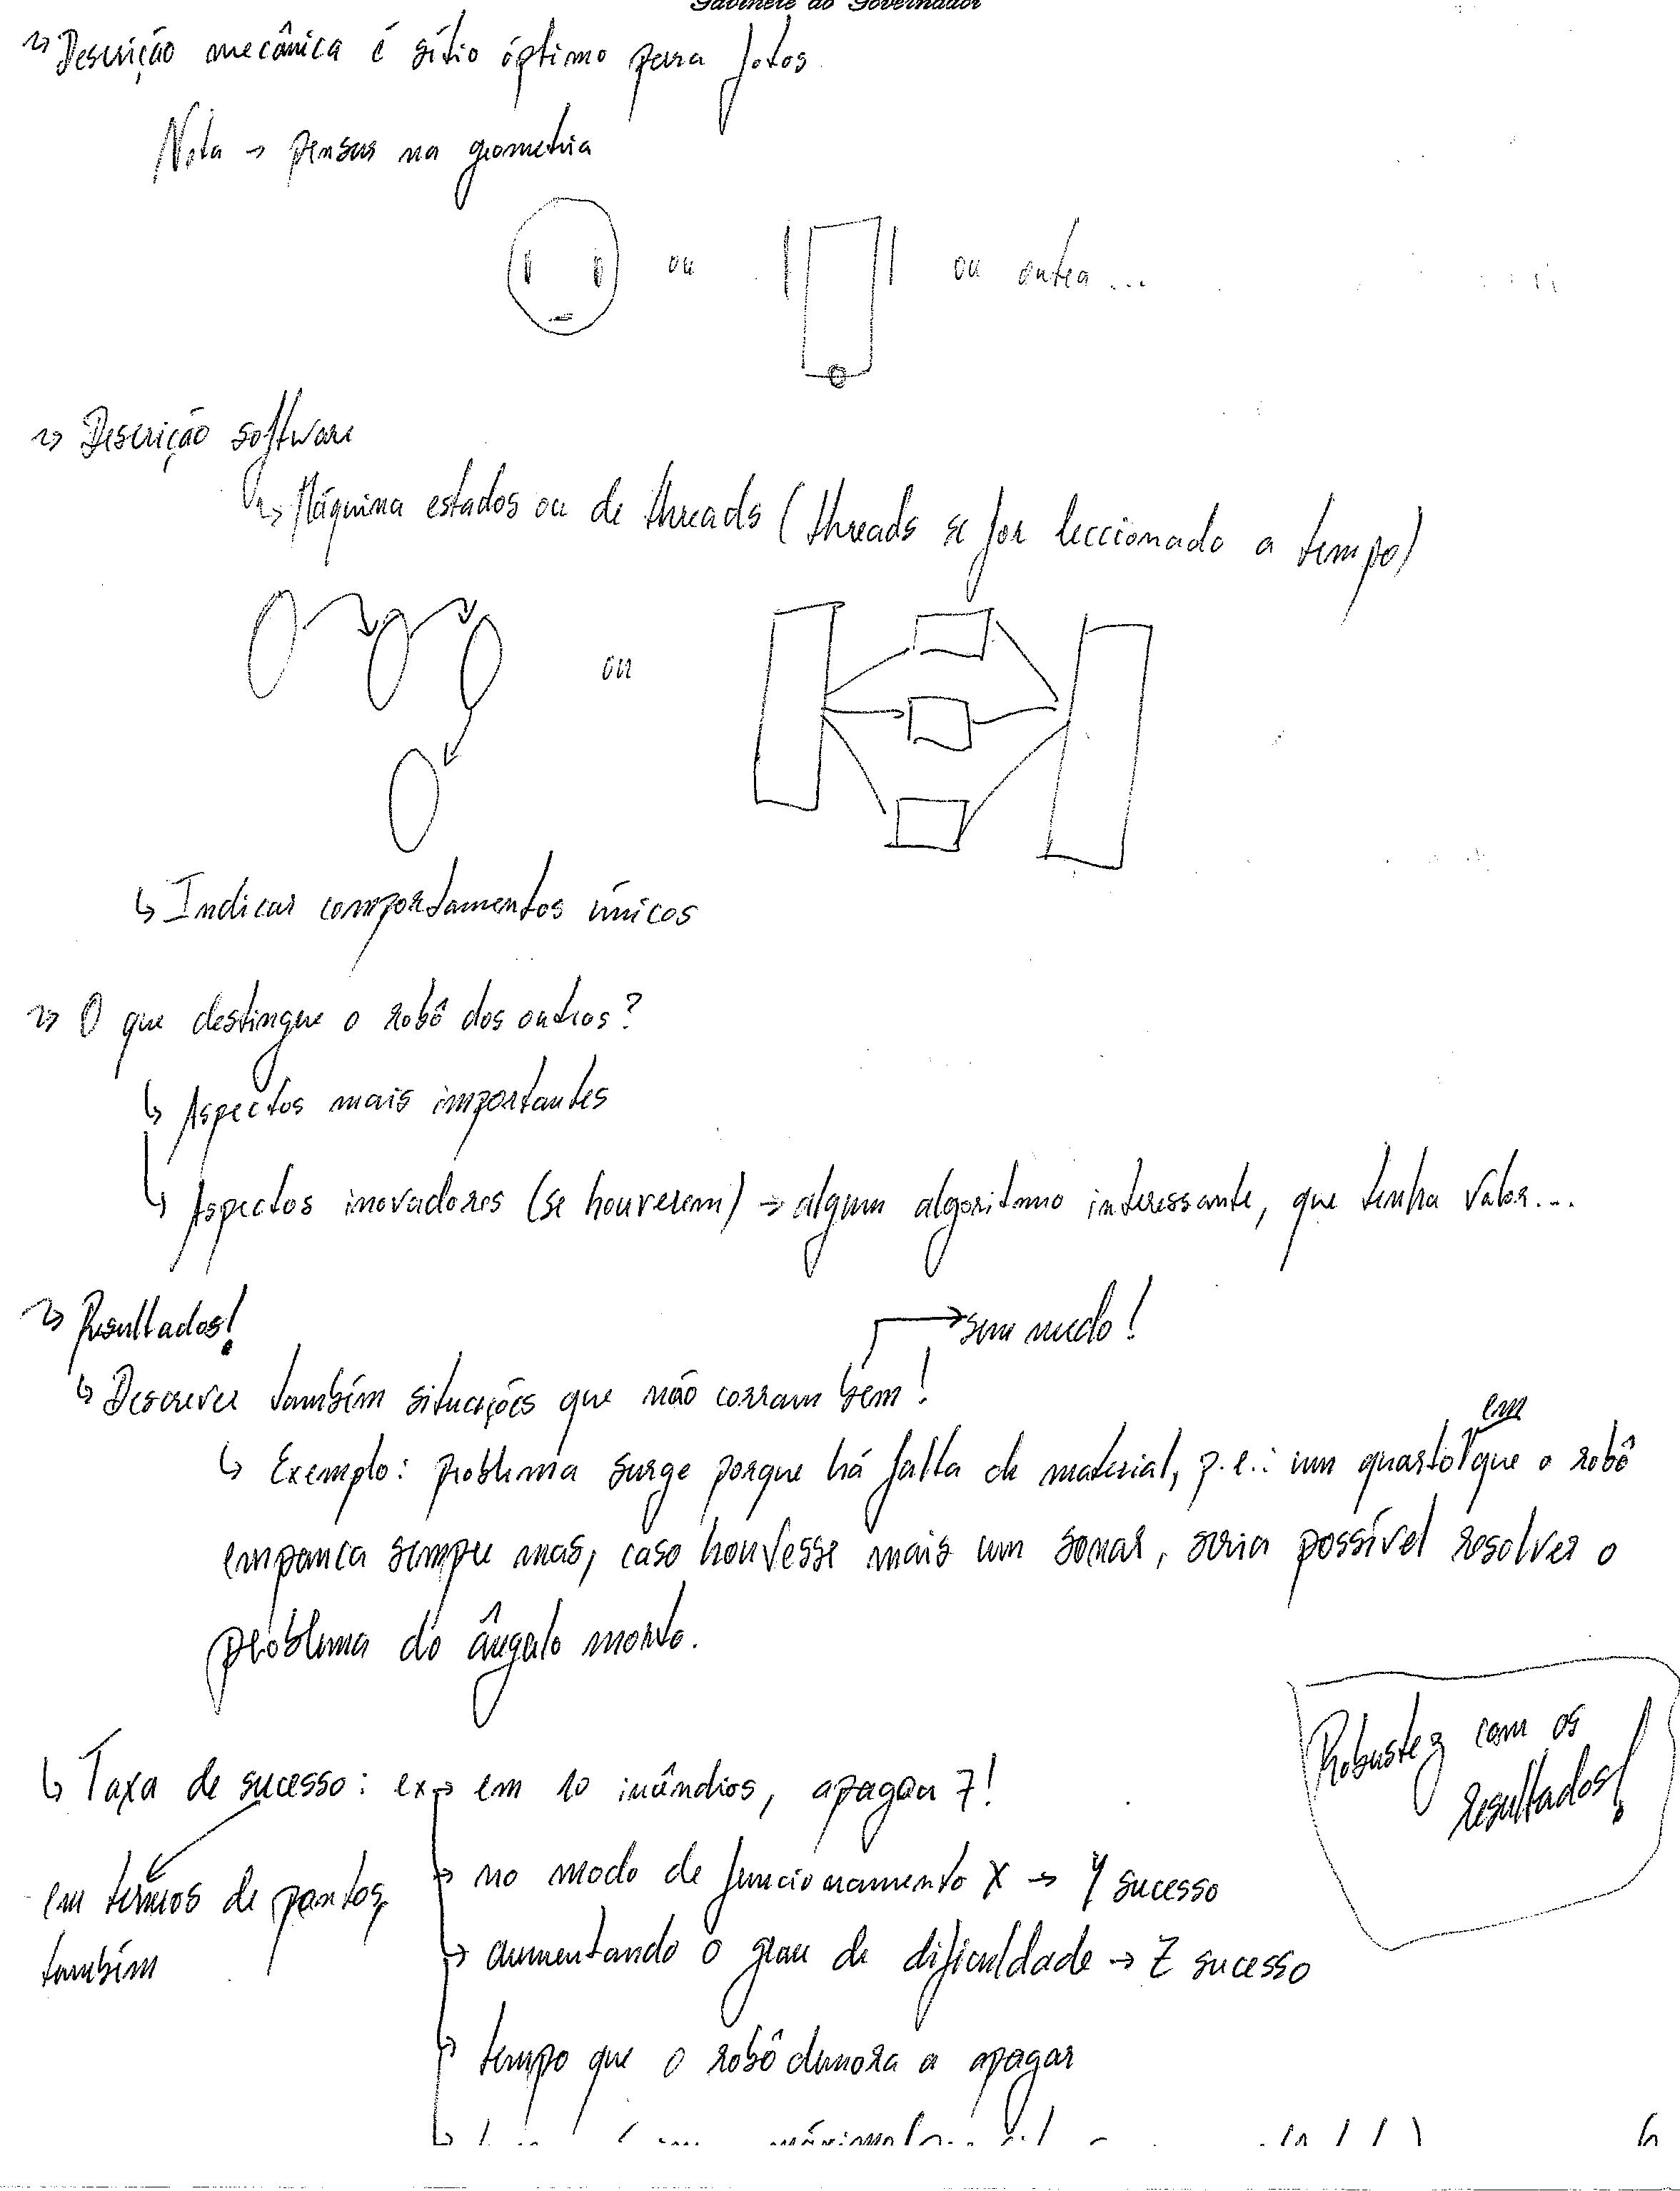 Gabinete do Governador
↳ Descrição mecânica é sítio óptimo para fotos.
Nota → pensar na geometria
ou
ou outra...
↳ Descrição software
↳ Máquina estados ou de threads (threads se for leccionado a tempo)
ou
↳ Indicar comportamentos únicos
↳ O que destingue o robô dos outros?
↳ Aspectos mais importantes
↳ Aspectos inovadores (se houverem) → algum algoritmo interessante, que tenha valor...
↳ Resultados!
→ sem medo!
↳ Descrever também situações que não corram bem!
em
↳ Exemplo: problema surge porque há falta de material, p.e.: um quarto que o robô
empanca sempre mas, caso houvesse mais um sonar, seria possível resolver o
problema do ângulo morto.
Robustez com os
resultados!
↳ Taxa de sucesso: ex→ em 10 incêndios, apagou 7!
em termos de pontos,
também
→ no modo de funcionamento X → Y sucesso
→ aumentando o grau de dificuldade → Z sucesso
→ tempo que o robô demora a apagar